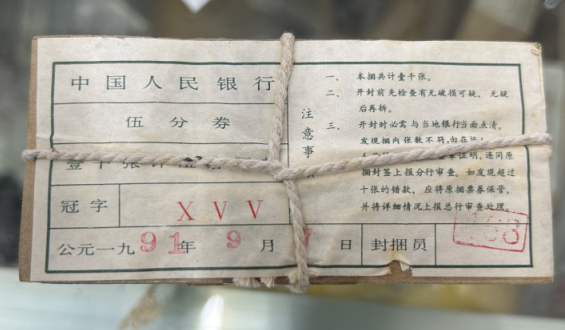 中国人民银行
伍分券
壹千张
冠字 XVV
公元一九91年9月 日 封捆员
注意事
一、本捆共计壹千张。
二、开封前先检查有无破损可疑，无疑
后再拆。
三、开封时必需与当地银行当面点清，
发现捆内张数不符，
证明，连同原
捆封签上报分行审查，如发现超过
十张的错款，应将原捆票券保管，
并将详细情况上报总行审查处理。